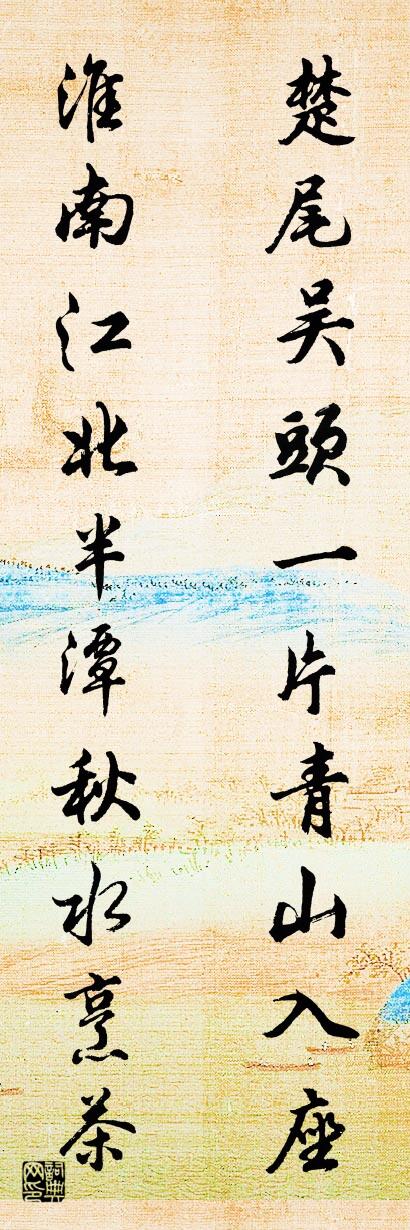 楚尾吴頭一片青山入座
淮南江北半潭秋水烹茶
詞典网印